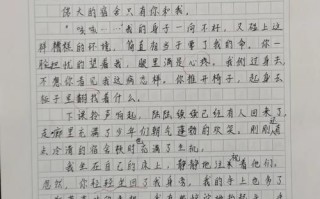 偌大的宿舍只有你和我。
“咳咳……”我的身子一向不好，又碰上这
样糟糕的环境，简直相当于要了我的命。你一
脸担忧的望着我，眼里满是心疼。我倒过身去，
不想你看见我这病态样。你推开椅子，起身去
柜子里翻找着什么。
下课铃声响起，陆陆续续已经有人回来了，
走廊里充满了少年们朝气蓬勃的欢笑，刚刚还
是冷清的宿舍也顿时充满了生机。
我坐在自己的床上，静静地注视着他们。
忽然，你轻轻坐回了我身旁，我的手上也多了